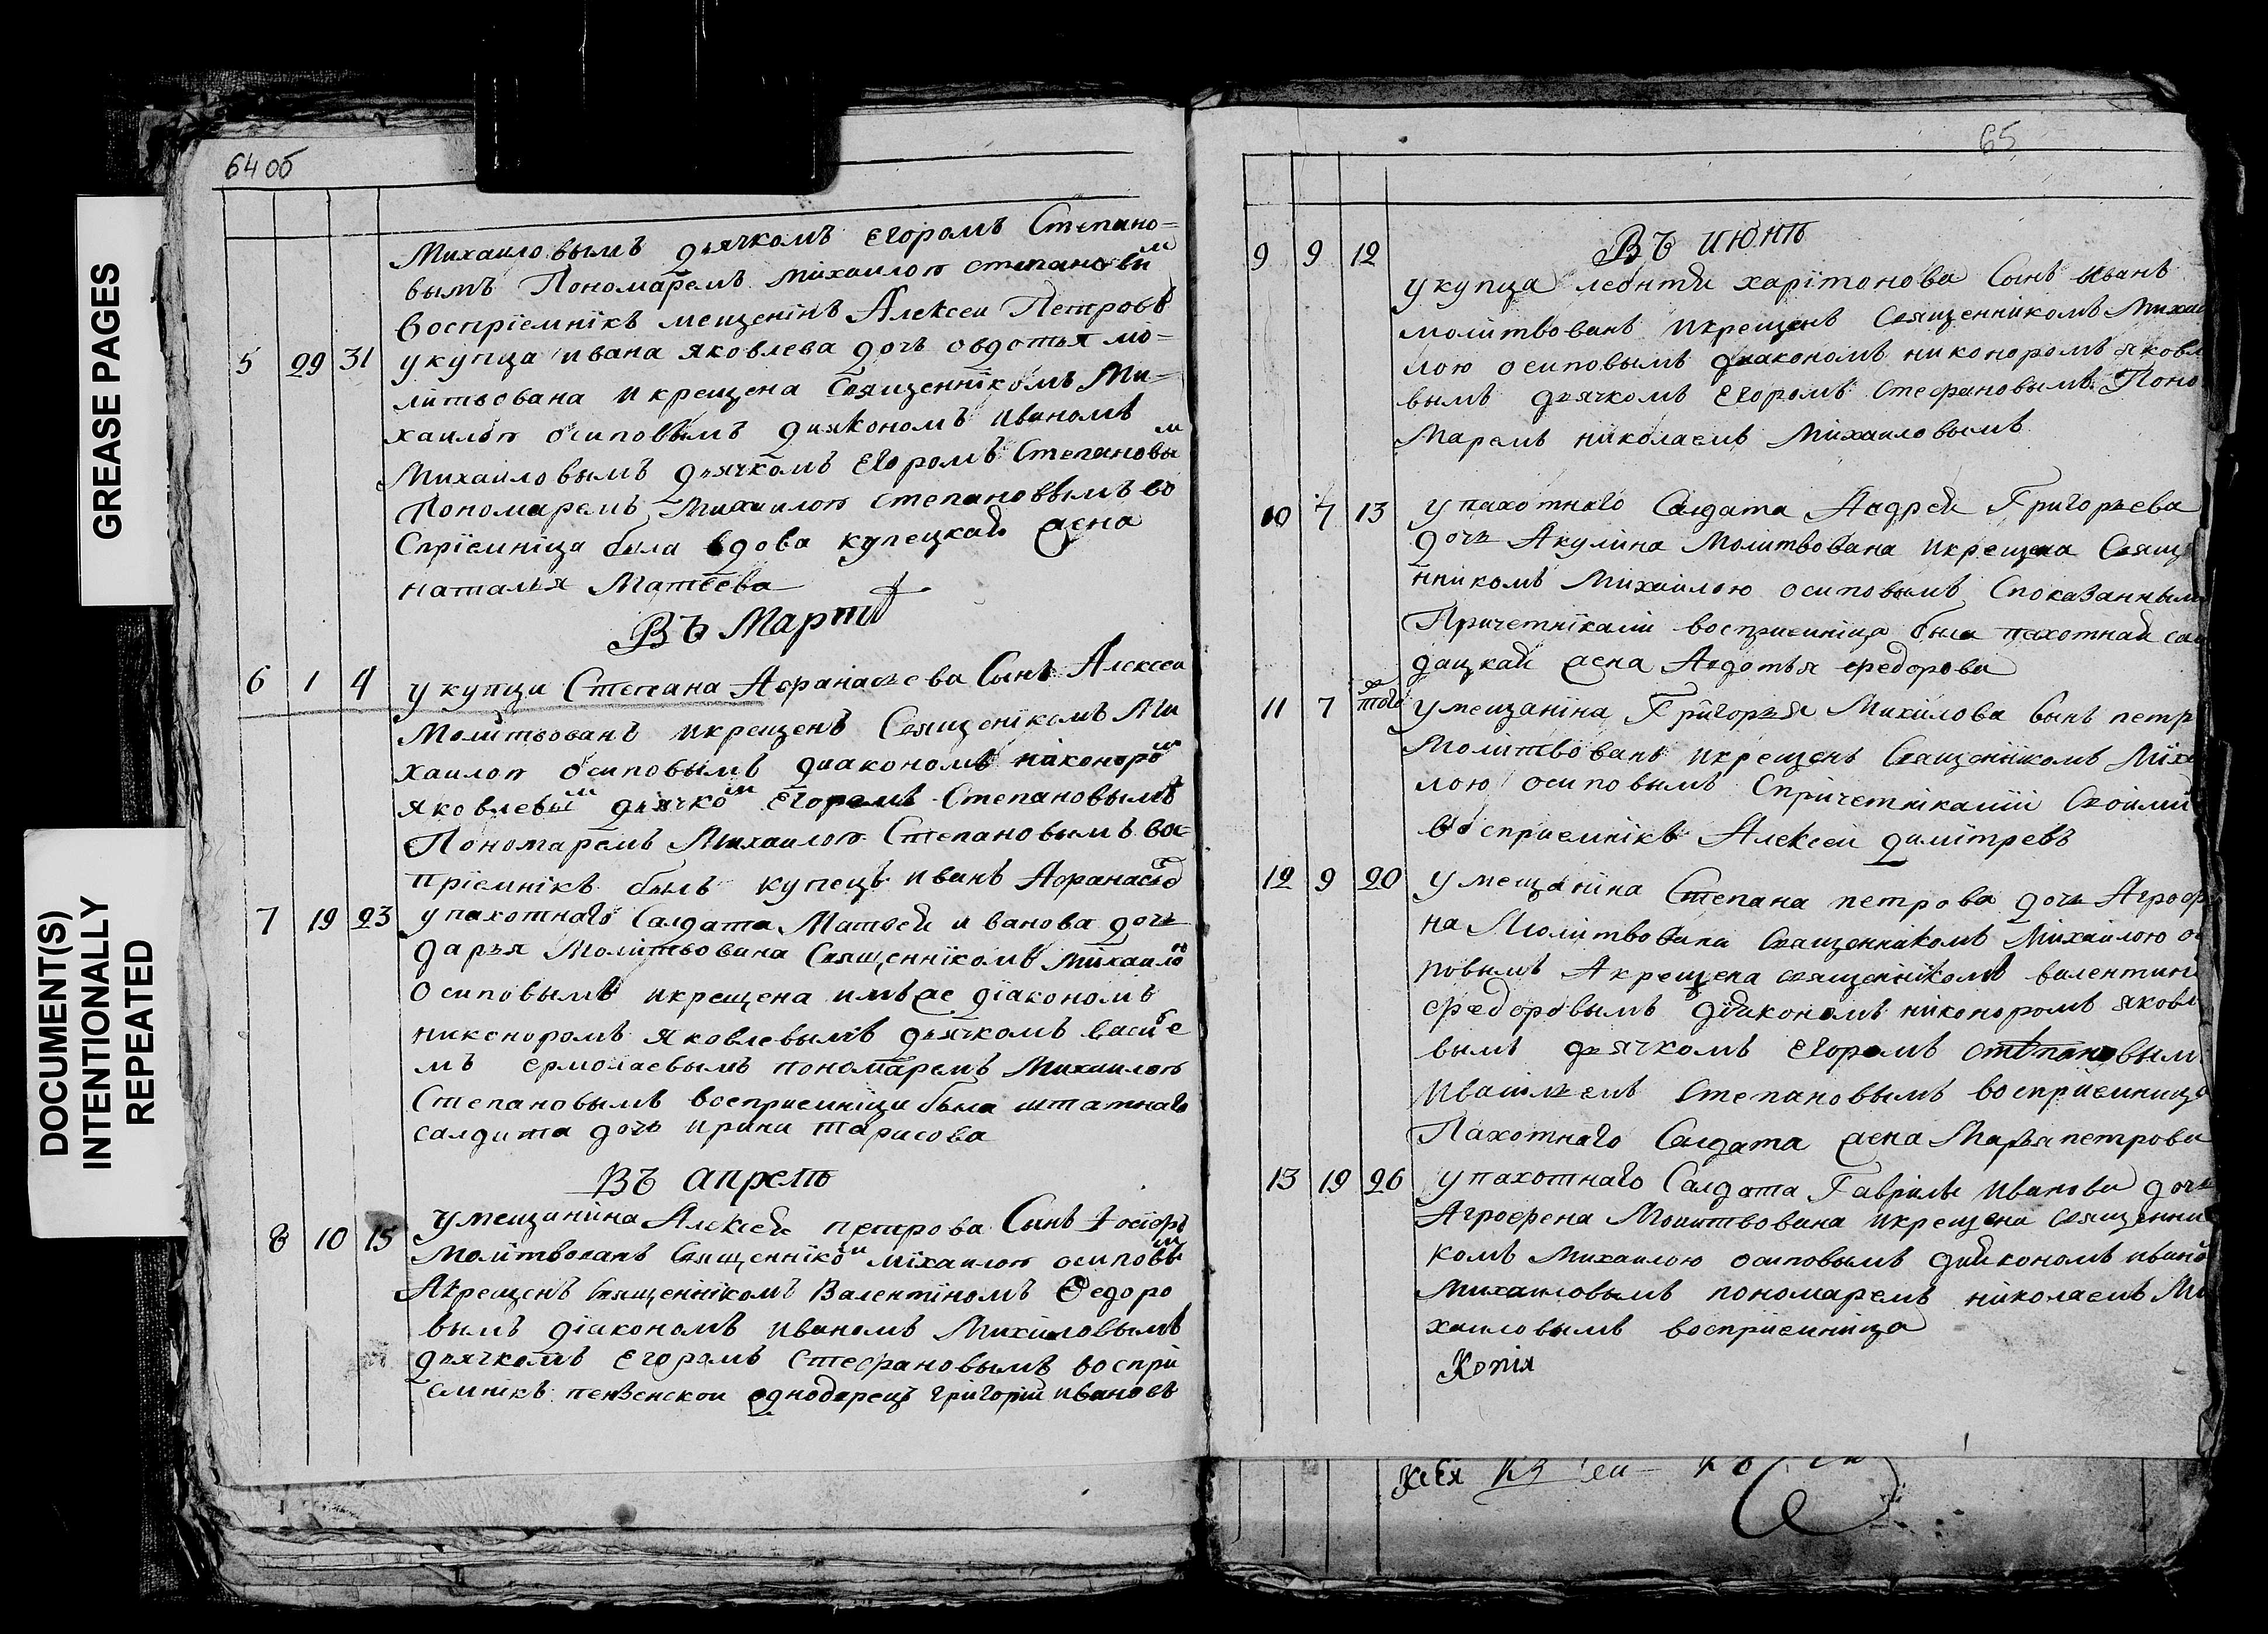 GREASE PAGES
DOCUMENT(S)
INTENTIONALLY
REPEATED
64 об
Михаиловымъ дьячкомъ Егоромъ Степано=
вымъ Пономаремъ Михаилоп степановы м
Восприемнiкъ мещенiнъ Алексеи Петровъ
5 29 31 у купца ивана яковлева дочь овдотья мо=
литвована и крещена Священнiкомъ Ми=
хаилоп осиповымъ диякономъ иваномъ
Михаиловымъ дьячкомъ Егоромъ Степановы м
Пономаремъ Михаилоп степановвымъ во
Спрiемнiца была вдова купецкаѣ жена
наталья Матвеева
Въ Мартѣ
6 1 4 у купца Степана Афанасьева Сынъ Алексеи
Молитвованъ и крещенъ Священiкомъ Ми
хаилоп осиповымъ диакономъ никоноро м
яковлевы м дьячко м Егоромъ Степановымъ
Пономаремъ Михаилоп Степановымъ вос=
прiемнiкъ былъ купецъ иванъ Афанасьев
7 19 23 у пахотнаго Салдата Матвеи иванова дочь
дарья Молiтвована Священнiкомъ Михаило ю
Осиповымъ и крещена имъ же дiакономъ
никонором Яковлевымъ дьячкомъ василе
мъ ермолаевымъ пономаремъ Михаилоп
Степановымъ восприемнiца была штатнаго
салдата дочь ирина тарасова
Въ апрелѣ
8 10 15 у мещанина Алексеи петрова Сынъ Iосифъ
Молiтвованъ Священнiко м мiхаилоп осиповы м
А крещенъ Священнiкомъ Валентiномъ Ѳедоро
вымъ дiакономъ иваномъ Михаиловымъ
дьячкомъ Егоромъ Стефановымъ воспри
емнiкъ пензенскои однодворецъ григорiи ивановъ
65
Въ июнѣ
9 9 12
у купца леонтiи харiтонова Сынъ иванъ
молiтвованъ и крещенъ Священникомъ Михаи
лою осиповымъ диакономъ никонором яковл
вымъ дьячкомъ Егоромъ Стефановымъ Поно
Маремъ николаемъ Михаиловымъ
10 7 13 у пахотнаго Салдата Андреи Григорьева
дочь Акулина Молитвована и крещена Свяще
нникомъ Михаилою осиповымъ С показанными
Причетнiками восприемнiца была пахотнаи сал
дацкаи жена Авдотья федорова
11 7 того ж у мещанiна Григорья Михаилова Сынъ петр
Молiтвованъ и крещенъ Священнiкомъ Мiха
лою осиповымъ С причетнiкамi своiми
восприемнiкъ Алексеи димiтревъ
12 9 20 у мещанiна Степана петрова дочь Агроф
на Молiтвована Священникомъ Михаилою ос
повымъ А крещена священнiкомъ валентин
федоровымъ дiакономъ никонором яковл
вымъ дьячкомъ Егоромъ степановым
Степановымъ восприемница
Пахотнаго Салдата жена Марья петрова
13 19 26 у пахотнаго Салдата Гаврилы иванова дочь
Агрофена Молитвована и крещена священни
комъ Михаилою осиповымъ дияконом ивано
Михаиловымъ пономаремъ николаемъ Ми
хаиловымъ восприемница
Копiя